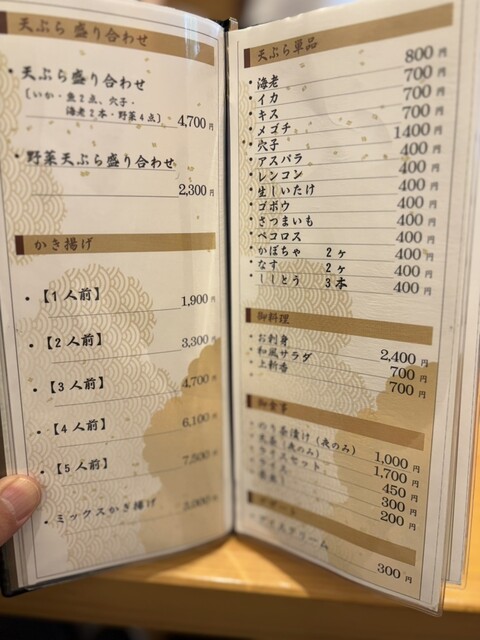 天ぷら 盛り合わせ
・天ぷら盛り合わせ
〔いか・魚2点、穴子・
海老2本・野菜4点〕 4,700円
・野菜天ぷら盛り合わせ
2,300円
かき揚げ
・【1人前】 1,900円
・【2人前】 3,300円
・【3人前】 4,700円
・【4人前】 6,100円
・【5人前】 7,500円
・ミックスかき揚げ
天ぷら単品
・海老 800円
・イカ 700円
・キス 700円
・メゴチ 700円
・穴子 1400円
・アスパラ 400円
・レンコン 400円
・生しいたけ 400円
・ゴボウ 400円
・さつまいも 400円
・ペコロス 400円
・かぼちゃ 2ヶ 400円
・なす 2ヶ 400円
・ししとう 3本 400円
御料理
・お刺身 2,400円
・和風サラダ 700円
・上新香 700円
御食事
・のり茶漬け(夜のみ) 1,000円
・天茶(夜のみ) 1,700円
・ライスセット 450円
・ライス 300円
200円
デザート
・アイスクリーム 300円